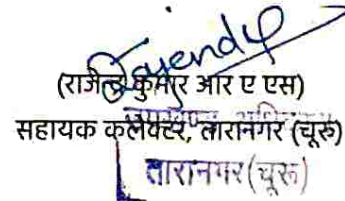 Rajendra
(राजेन्द्र कुमार आर ए एस)
सहायक कलेक्टर, तारानगर (चूरू)
तारानगर (चूरू)